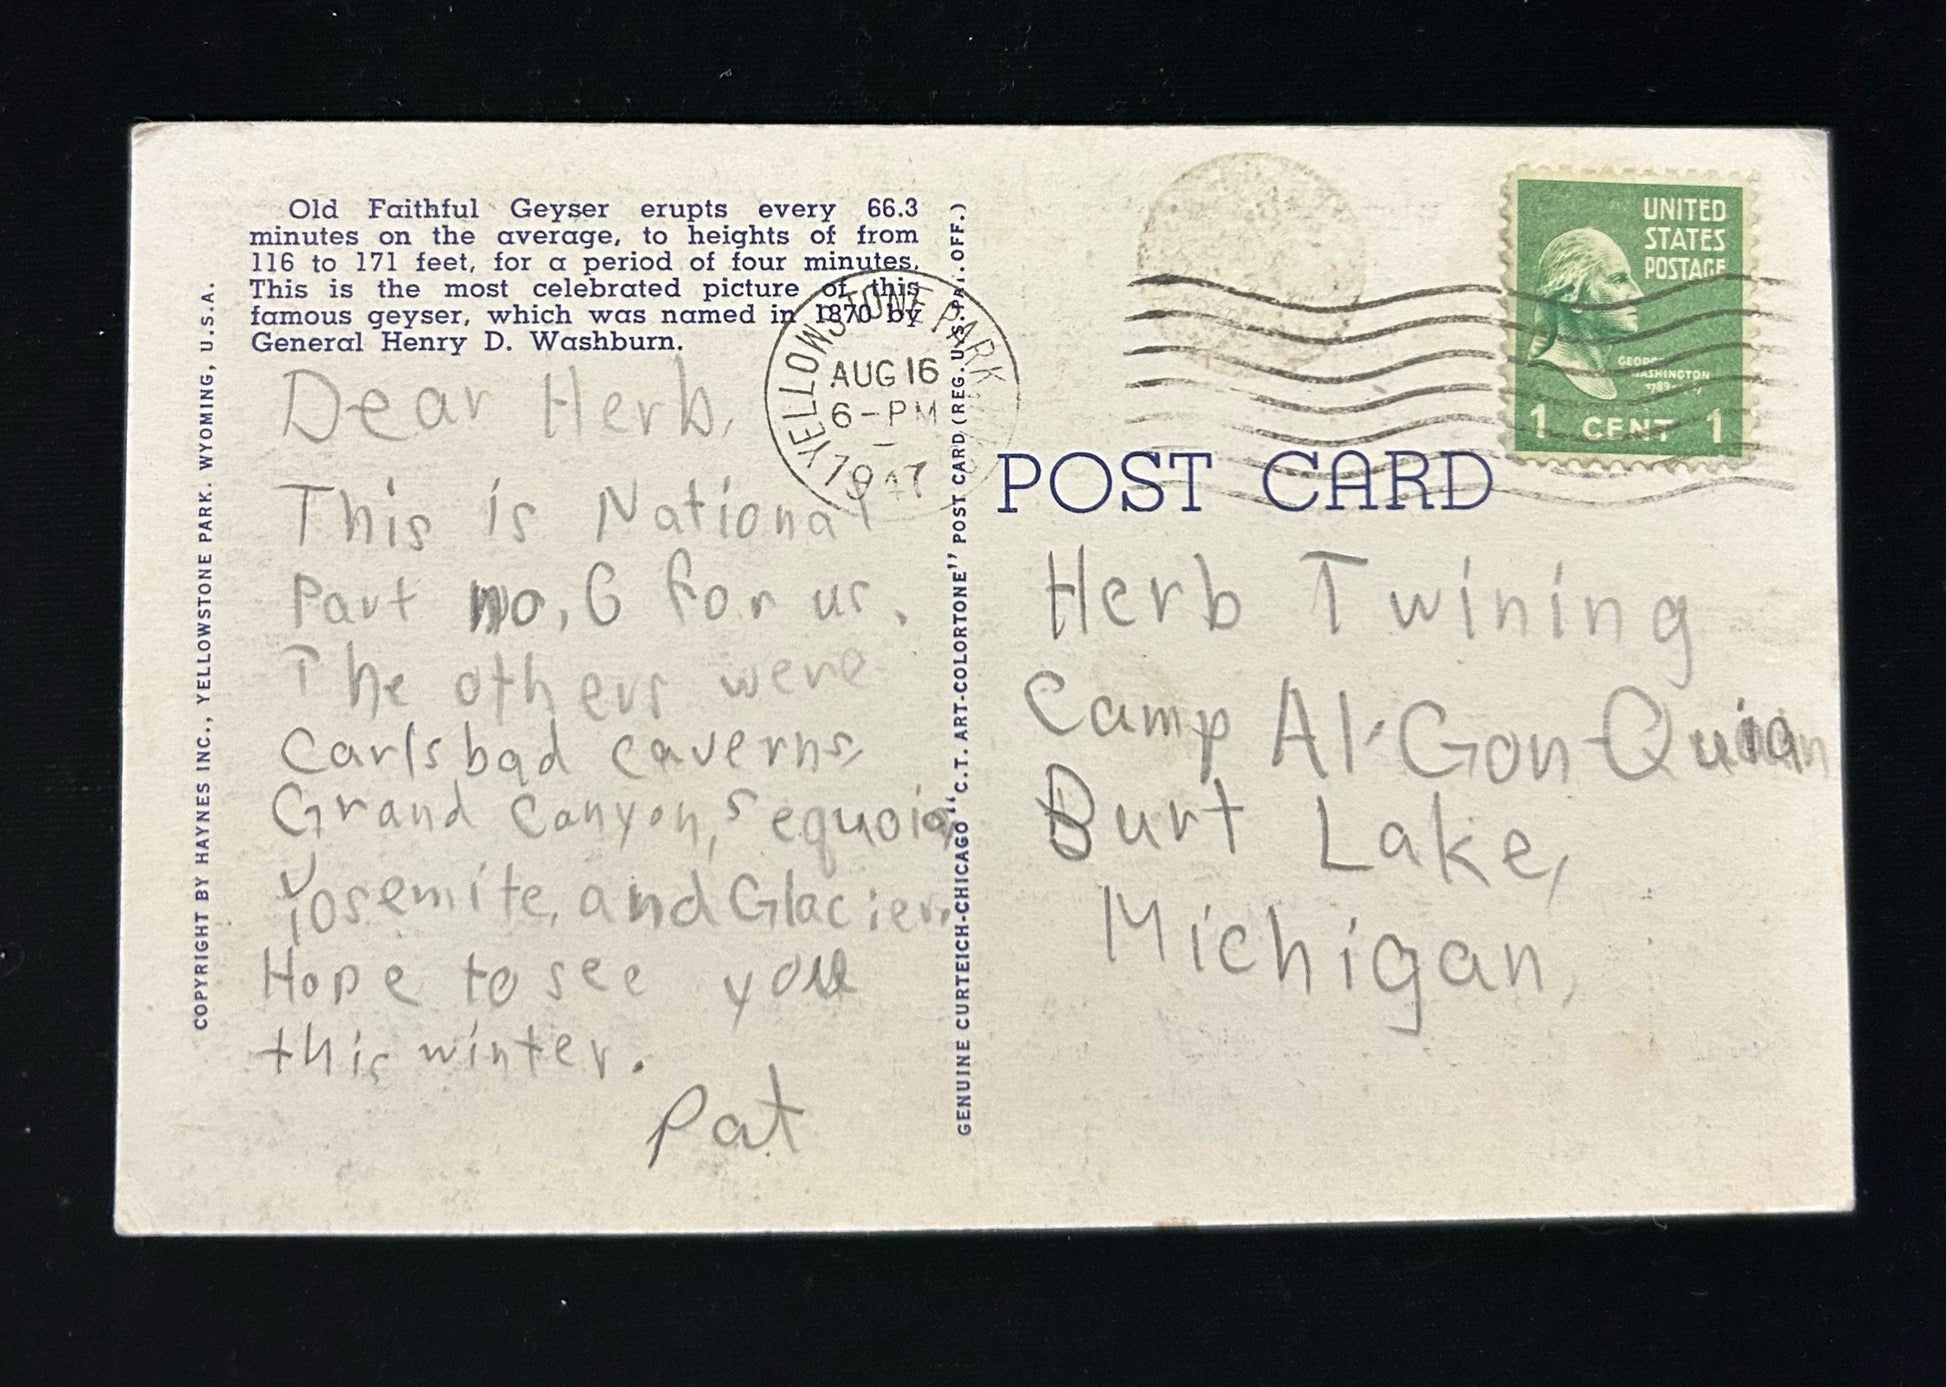 Old Faithful Geyser erupts every 66.3
minutes on the average, to heights of from
116 to 171 feet, for a period of four minutes.
This is the most celebrated picture of this
famous geyser, which was named in 1870 by
General Henry D. Washburn.
Dear Herb,
This is National
Part no. 6 for us.
The others were
Carlsbad caverns,
Grand Canyon, Sequoia,
Yosemite, and Glacier.
Hope to see you
this winter.
Pat
COPYRIGHT BY HAYNES INC., YELLOWSTONE PARK. WYOMING, U.S.A.
GENUINE CURTEICH-CHICAGO "C.T. ART-COLORTONE" POST CARD (REG. U.S. PAT. OFF.)
YELLOWSTONE PARK
AUG 16
6-PM
1947
UNITED
STATES
POSTAGE
GEORGE
WASHINGTON
1789-
1 CENT 1
POST CARD
Herb Twining
Camp Al-Gon-Quian
Burt Lake,
Michigan,